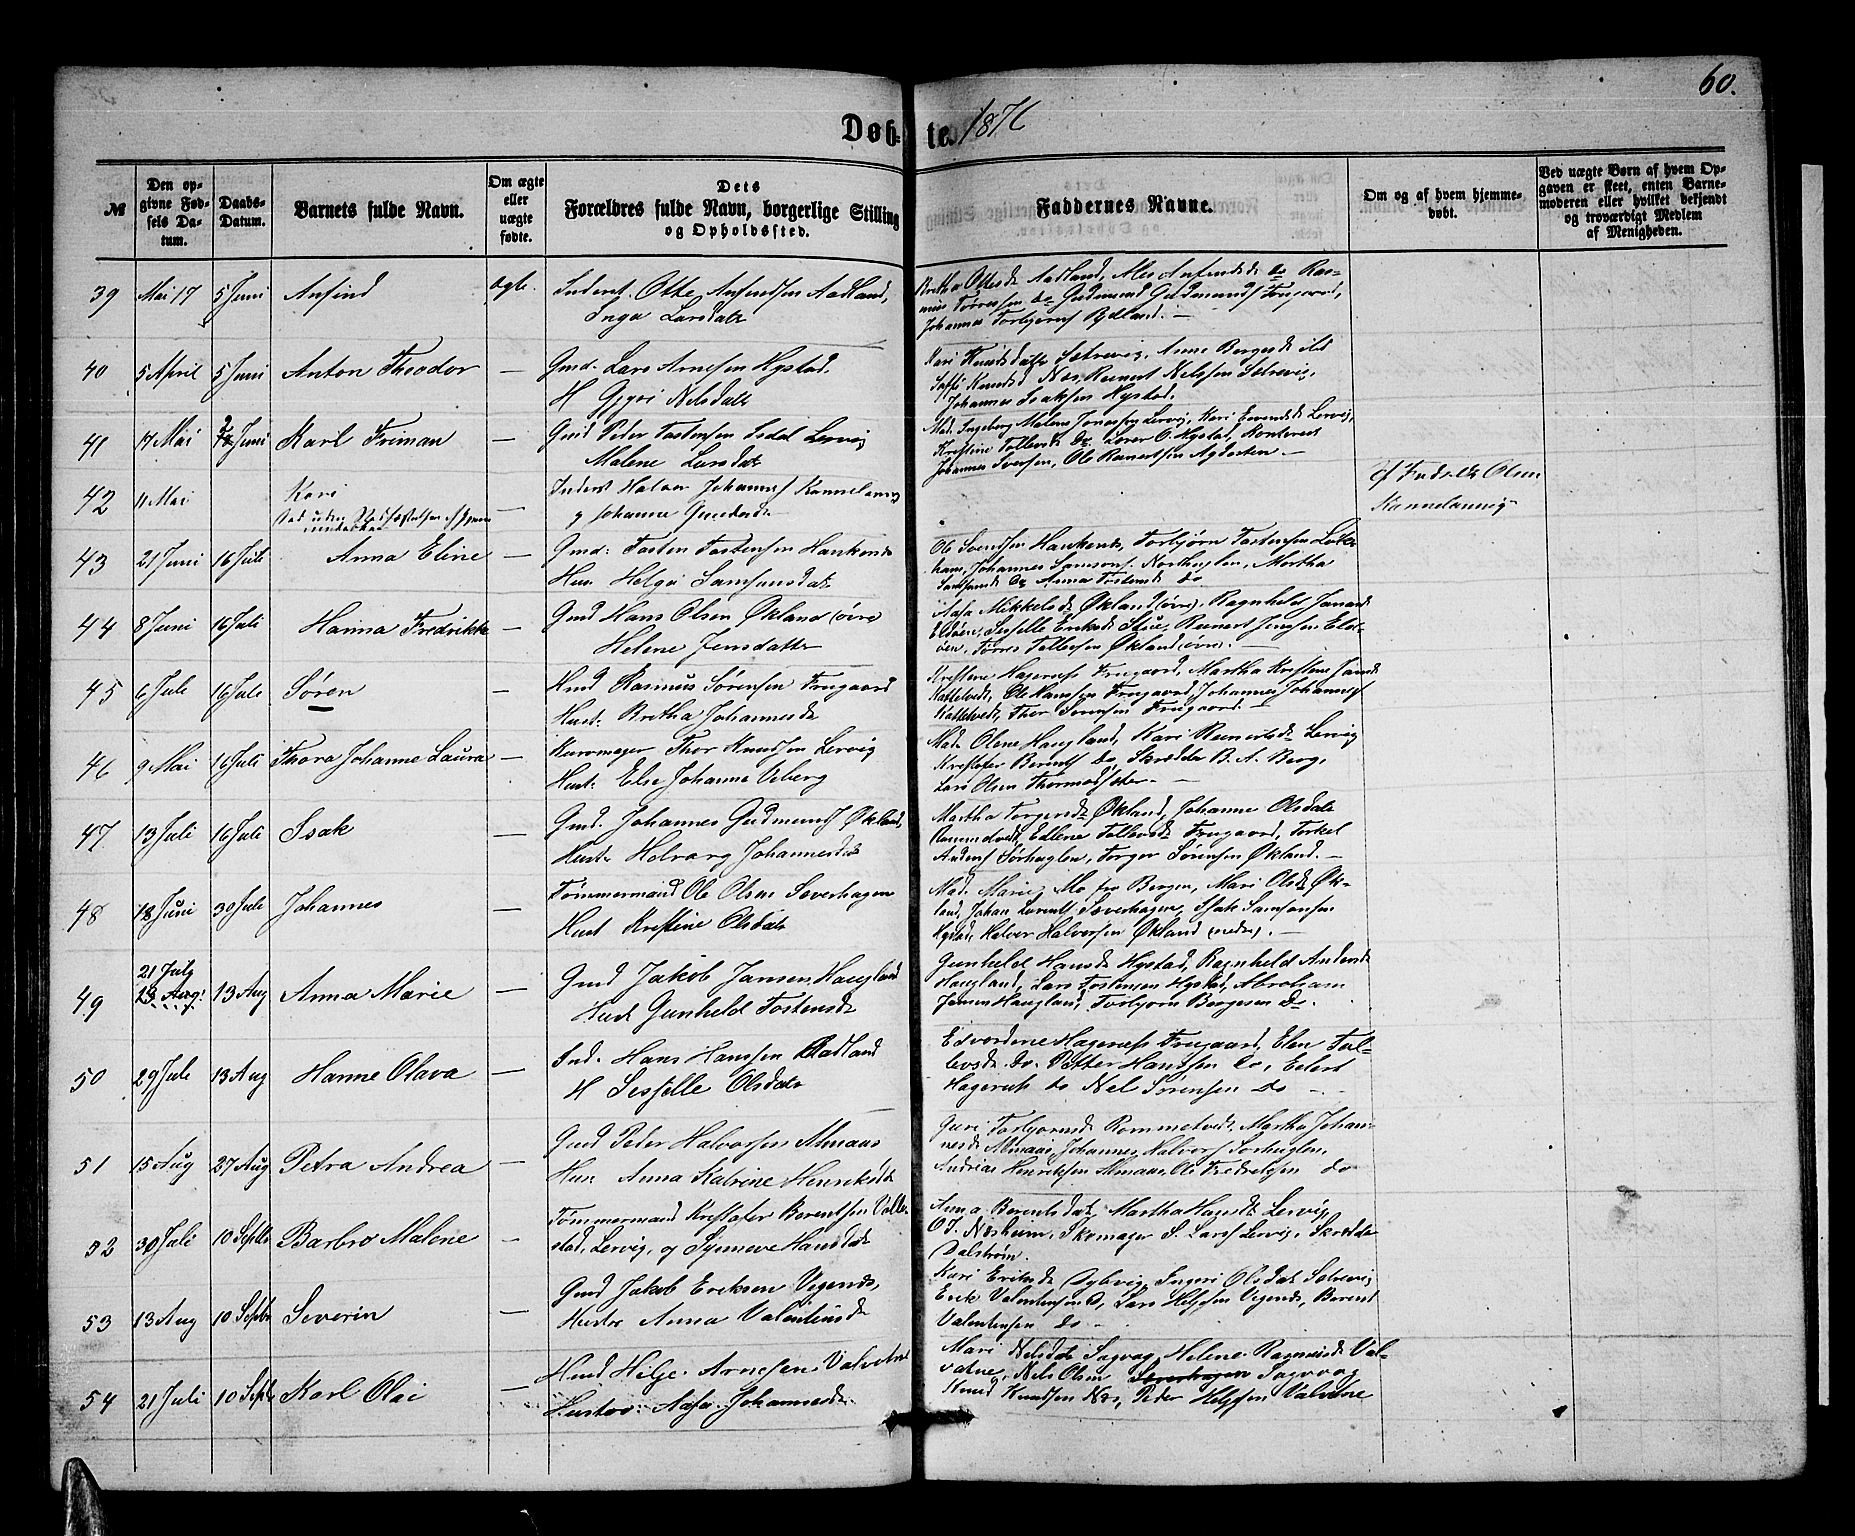 60.
Døbte. 1876
№
Den opgivne Fødsels Datum.
Daabs-Datum.
Barnets fulde Navn.
Om ægte eller uægte fødte.
Dets Forældres fulde Navn, borgerlige Stilling og Opholdssted.
Faddernes Navne.
Om og af hvem hjemmedøbt.
Ved uægte Børn af hvem Opgaven er skeet, enten Barnemoderen eller hvilket bekjendt og troværdigt Medlem af Menigheden.
39 Mai 17 5 Juni Anfind ægte. Inderst Otte Anfindsen Aadland,
Inga Larsdatr
Johannes Torbjørns Rydland. —
40 5 April 5 Juni Anton Theodor — Gmd. Lars Arnesen Hystad.
H Gjøri Nelsdatr
Kari Knudsdatter Selrevig, Anne Bergesdt
Knudsd Næs, Reinert Nelssen Selrevig,
Johannes Isaksen Hystad.
41 17 Mai Juni Karl Friman — Gmd Peder Tostensen Lervig
Malene Larsdatr
Mad. Ingeborg Malene Lervig, Kari Lervig,
Kristine Tollevsd do, Hystad, Kontorist
Johannes Svensen, Ole Reinertsen Agdesten —
42 11 Mai Kari — Inderst Halvor Johannes Kannelønnig
og Johanne
død uden
af Fredrik Olsen
Kannelønnig
43 21 Juni 16 Juli Anna Eline — Gmd: Tosten Tostensen Hankenæs
Hus. Helga Samsonsdatr
Ole Svendsen Hankenæs, Torbjørn Tostensen
Johannes Samsons. Nordhuglen, Martha
Samsonsd do Anna Tostensd do
44 8 Juni 16 Juli Hanna Fredrikke — Gmd Hans Olsen Økland (øvre)
Helene Jensdatter
Aasa Mikkelsdt Økland (øvre), Ragnhild
Eldøen, Sesselle Eriksdt Stue, Reinert Jensen Eldøen,
Tørres Tollefsen Økland (øvre). —
45 6 Juli 16 Juli Søren — Hmd Rasmus Sørensen Frugaard
Hust. Bretha Johannesdt
Kristene Hagerups Frugaard, Martha Kristene
Kattelvedt, Ole Hanssen Frugaard, Johannes Johannes
Kattelvedt, Thor Sørensen Frugaard. —
46 9 Mai 16 Juli Thora Johanne Laura — Thor Knudsen Lervig
Hust. Else Johanne Viberg
Mad. Olene Haugland, Kari Reinertsdt Lervig
Kristofer Berents do, Skrædder B. A. Berg,
Lars Olsen Thormodsæter. —
47 13 Juli 16 Juli Isak — Gmd. Johannes Gudmunds Økland,
Hustr Helvarg Johannesdt
Martha Torgersdt Økland, Johanne Olsdatr
Rommetvedt, Edlene Tollevsdt Frugaard, Torkel
Anders Sørhuglen, Torger Sørensen Økland. —
48 18 Juni 30 Juli Johannes — Tømmermand Ole Olsen Severhagen
Hust Kristine Olsdatr
Mad. Marie Mo fra Bergen, Mari Olsdt Økland,
Johan Lorents Severhagen, Isak Samsonsen
Hystad, Halvor Halvorsen Økland (nedre). —
49 21 Juli 13 Aug Anna Marie — Gmd Jakob Jansen Haugland
Hust Gunhild Tostensdt
Gunhild Hansdt Hystad, Ragnhild Andersdt
Haugland, Lars Tostensen Hystad, Abraham
Jansen Haugland, Torbjørn Bergesen do.
50 29 Juli 13 Aug Hanne Olava — Ind. Hans Hanssen Aadland
H Sesselle Olsdatr
Edvardine Hagerups Frugaard, Elen Tollevsdt
do. Petter Hanssen do, Eilert
Hagerup do Nel Sørensen do —
51 15 Aug 27 Aug Petra Andrea — Gmd Peder Halvorsen Almaas
Hus Anna Katrine Henriksdt
Guri Torbjørnsdt Rommetvedt, Martha Johannesdt
Almaas, Johannes Halvors Sørhuglen,
Andreas Henriksen Almaas, Ole Fredriksen do
52 30 Juli 10 Septbr Barbro Malene — Tømmermand Kristofer Berentsen Vallestad,
Lervig, og Synneve Hansdatr
Anna Berentsdatr, Martha Hansdt Lervig,
O. T. Næsheim, Skomager S. Lars Lervig, Skrædder
Dalstrøm.
53 13 Aug 10 Septbr Severin — Gmd Jakob Eriksen Vigenæs,
Hustr Anna Valentinsdt
Kari Eriksdt Dybvig, Ingeri Olsdat Selrevig
Erik Valentinsen do, Lars Helgesen Vigenæs, Berent
Valentinsen do —
54 21 Juli 10 Septbr Karl Olai — Hmd Hilje Arnesen Valvatne
Hustro Aasa Johannesdt
Mari Nelsdt Sagvag, Helene Rasmusdt Valvatne,
Nels Olsen Sagvag
Knud Knudsen Næs, Peder Helgesen Valvatne